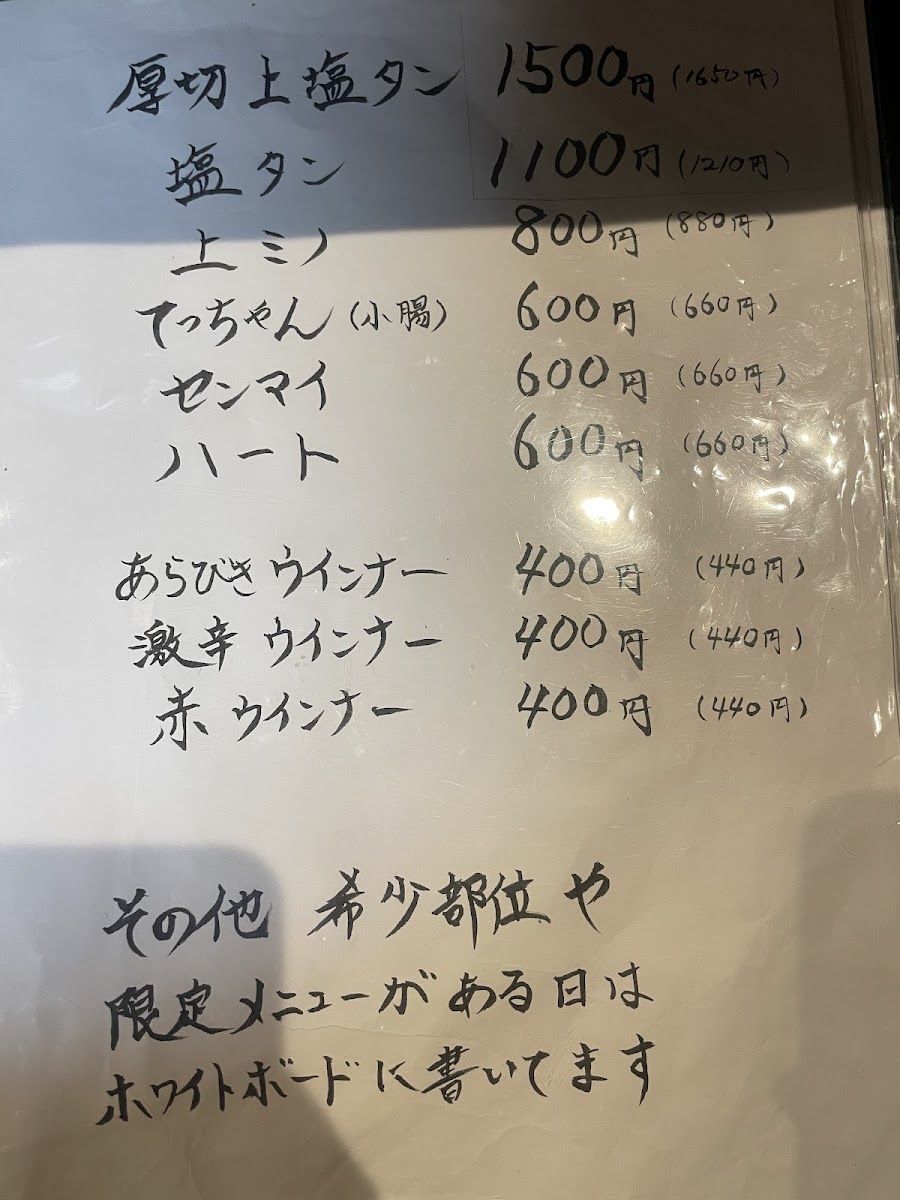 厚切上塩タン 1500円(1650円)
塩タン 1100円(1210円)
上ミノ 800円(880円)
てっちゃん(小腸) 600円(660円)
センマイ 600円(660円)
ハート 600円(660円)
あらびきウインナー 400円(440円)
激辛ウインナー 400円(440円)
赤ウインナー 400円(440円)
その他 希少部位や
限定メニューがある日は
ホワイトボードに書いてます